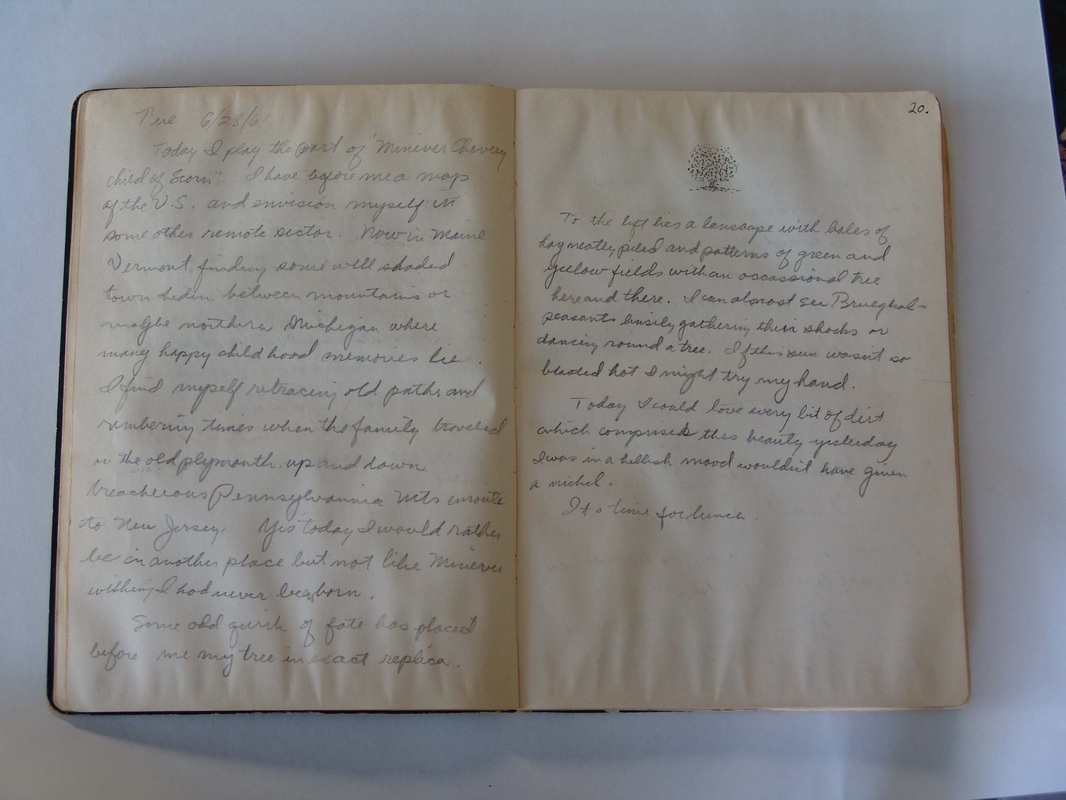 Tue 6/28/6
Today I play the part of "Miniver Cheevey
child of Scorn". I have before me a map
of the U.S. and envision myself in
some other remote sector. Now in Maine
Vermont finding some well shaded
town hidin between mountains or
maybe northern Michigan where
many happy childhood memories lie.
I find myself retracing old paths and
rembering times when the family traveled
in the old plymouth, up and down
treacherous Pennsylvannia Mts enroute
to New Jersey. Yes today I would rather
be in another place but not like Miniver
wishing I had never been born.
Some odd quirk of fate has placed
before me my tree in exact replica.
20.
To the left lies a lanscape with bales of
hay neatly piled and patterns of green and
yellow fields with an occassional tree
here and there. I can almost see Brueghal-
peasants busily gathering their shocks or
dancing round a tree. If this sun wasn't so
blasted hot I might try my hand.
Today I could love every bit of dirt
which comprises this beauty yesterday
I was in a hellish mood wouldn't have given
a nickel.
It's time for lunch.